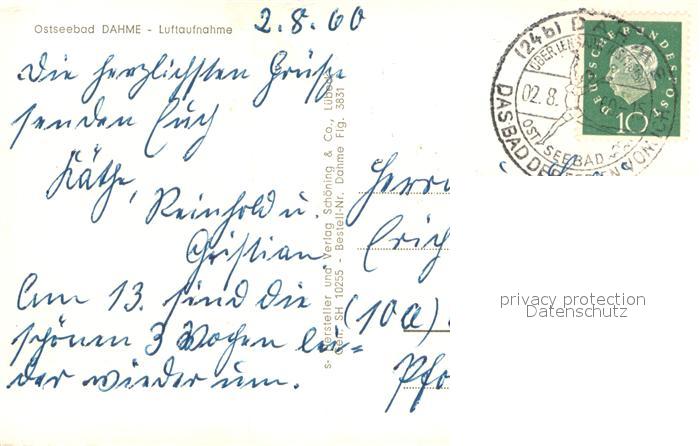 Ostseebad DAHME - Luftaufnahme
2.8.60
Die herzlichsten Grüße
senden Euch
Käthe,
Reinhold u.
Christian.
Am 13. sind die
schönen 3 Wochen lei=
der wieder um.
Hersteller und Verlag Schöning & Co., Lübeck
Gen. SH 10255 - Bestell-Nr. Dahme Flg. 3831
Herrn
Erich
(10a)
(24b) DAHME
02.8.
OSTSEEBAD
DAS BAD DER
DEUTSCHE BUNDESPOST
10
privacy protection
Datenschutz